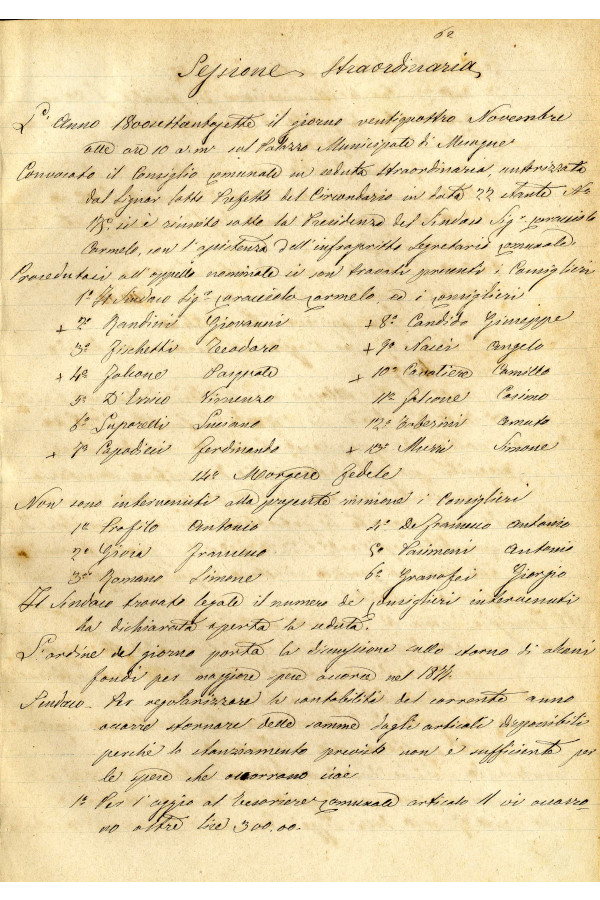 62
Sessione Straordinaria
L'Anno 1800settantasette il giorno ventiquattro Novembre
alle ore 10 a.m. sul Palazzo Municipale di Mesagne
Convocato il Consiglio Comunale in seduta straordinaria, autorizzata
dal Signor Sotto Prefetto del Circondario in data 22 stante No
si è riunito sotto la Presidenza del Sindaco Sigr Caracciolo
Carmelo, con l'assistenza dell'infrascritto Segretario Comunale.
Procedutasi all'appello nominale si son trovati presenti i Consiglieri
1o Il Sindaco Sigr Caracciolo Carmelo, ed i Consiglieri
+ 2o Nandini Giovanni + 8o Candido Giuseppe
3o Fischetti Teodoro + 9o Nacci Angelo
+ 4o Falcone Pasquale + 10o Cavaliere Camillo
5o D'Errico Vincenzo 11o Falcone Cosimo
6o Luciano 12o
+ 7o Capodieci Ferdinando + 13o Simone
14o Morgese Fedele
Non sono intervenuti alla presente riunione i Consiglieri
1o Profilo Antonio 4o De Francesco Antonio
2o Francesco 5o Antonio
3o Romano Simone 6o Granafei Giorgio
Il Sindaco trovato legale il numero de' Consiglieri intervenuti
ha dichiarata aperta la seduta.
L'ordine del giorno porta la discussione sullo storno di alcuni
fondi per maggiore spese occorse nel 1877.
Sindaco - Per regolarizzare la contabilità del corrente anno
occorre stornare delle somme dagli articoli disponibili
perchè lo stanziamento previsto non è sufficiente per
le spese che occorrono cioè
1o Per l'aggio al Tesoriere Comunale articolo 11 vi occorro-
no altre lire 300.00.